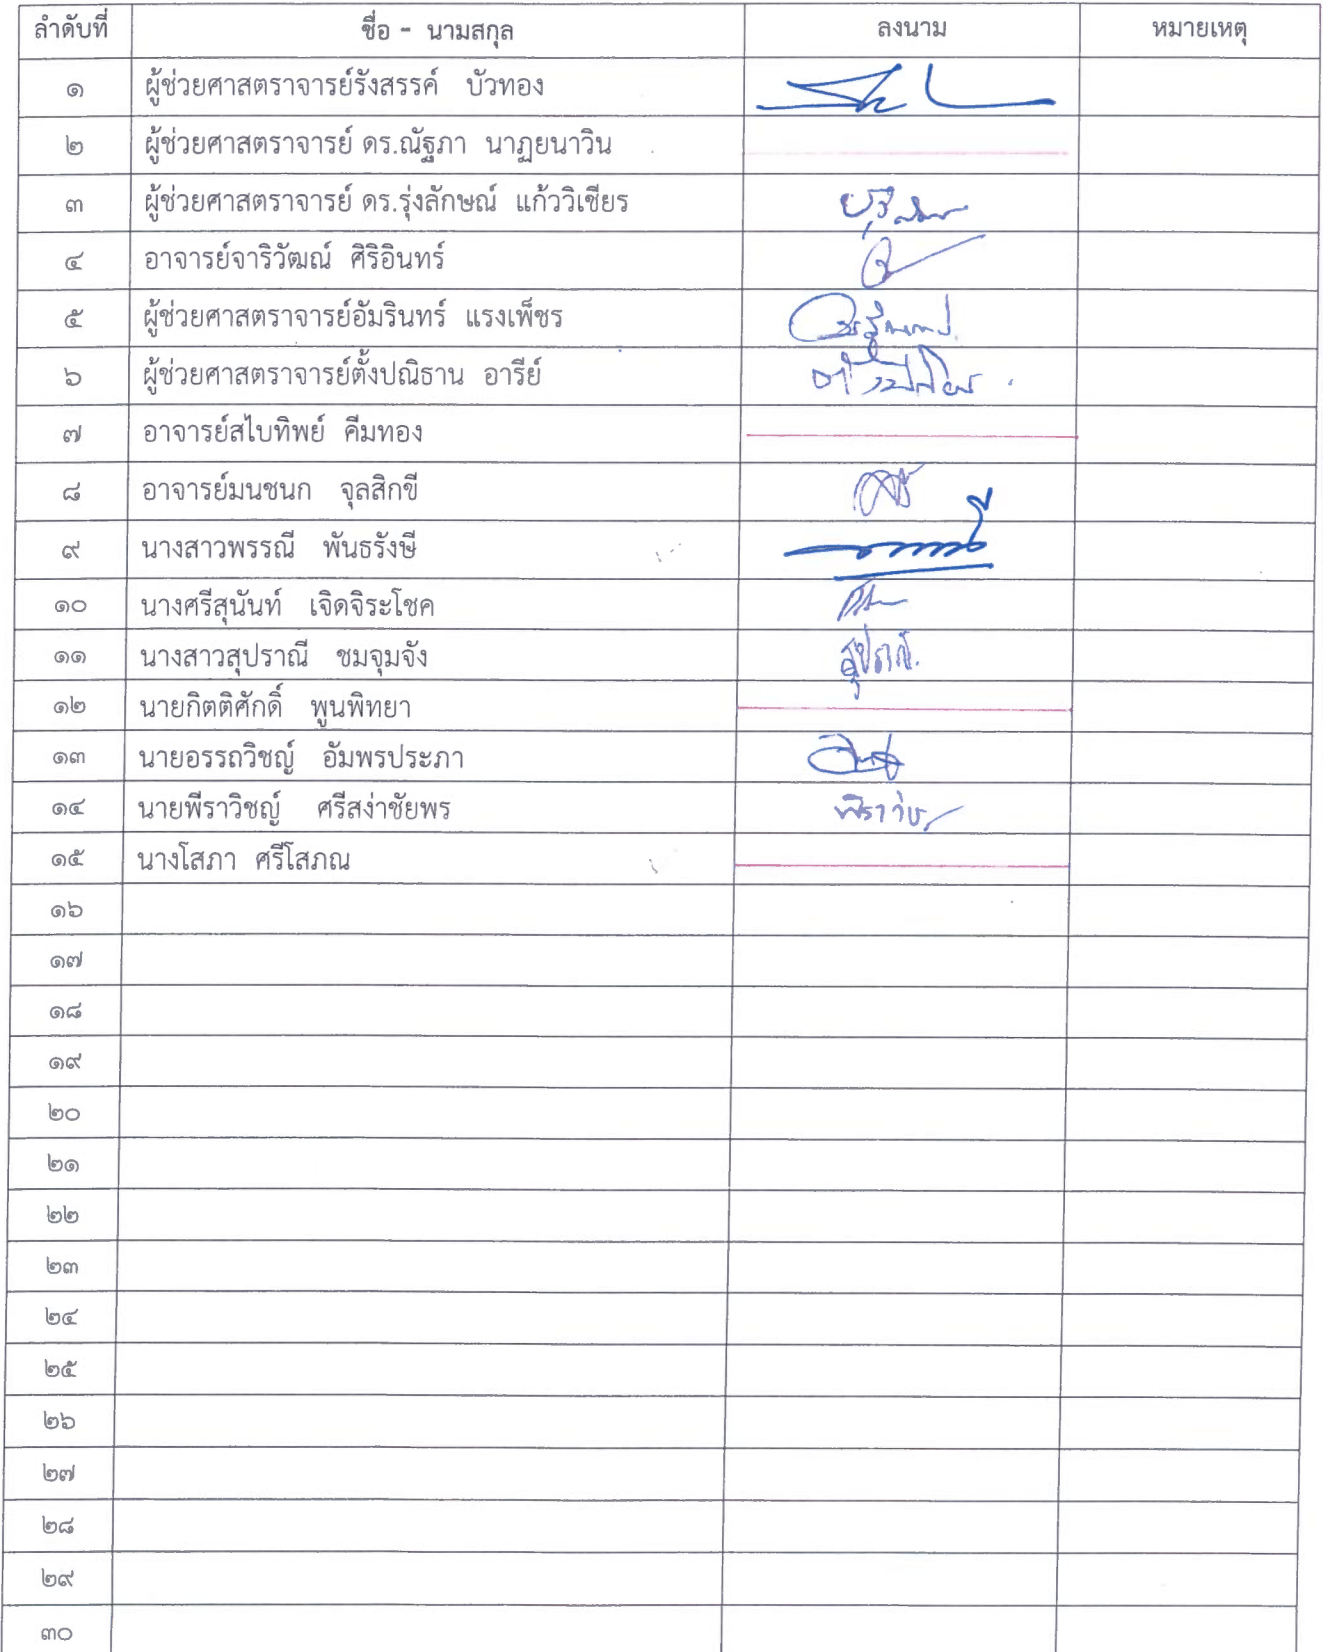 ลำดับที่ ชื่อ - นามสกุล ลงนาม หมายเหตุ
๑ ผู้ช่วยศาสตราจารย์รังสรรค์ บัวทอง
๒ ผู้ช่วยศาสตราจารย์ ดร.ณัฐภา นาฏยนาวิน
๓ ผู้ช่วยศาสตราจารย์ ดร.รุ่งลักษณ์ แก้ววิเชียร
๔ อาจารย์จาริวัฒณ์ ศิริอินทร์
๕ ผู้ช่วยศาสตราจารย์อัมรินทร์ แรงเพ็ชร
๖ ผู้ช่วยศาสตราจารย์ตั้งปณิธาน อารีย์
๗ อาจารย์สไบทิพย์ คีมทอง
๘ อาจารย์มนชนก จุลสิกขี
๙ นางสาวพรรณี พันธรังษี
๑๐ นางศรีสุนันท์ เจิดจิระโชค
๑๑ นางสาวสุปราณี ชมจุมจัง สุปราณี.
๑๒ นายกิตติศักดิ์ พูนพิทยา
๑๓ นายอรรถวิชญ์ อัมพรประภา
๑๔ นายพีราวิชญ์ ศรีสง่าชัยพร
๑๕ นางโสภา ศรีโสภณ
๑๖
๑๗
๑๘
๑๙
๒๐
๒๑
๒๒
๒๓
๒๔
๒๕
๒๖
๒๗
๒๘
๒๙
๓๐